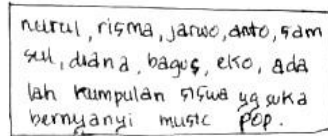 nurul, risma, jarwo, anto, sam
sul, diana, bagus, eko, ada
lah kumpulan siswa yg suka
bernyanyi music POP.